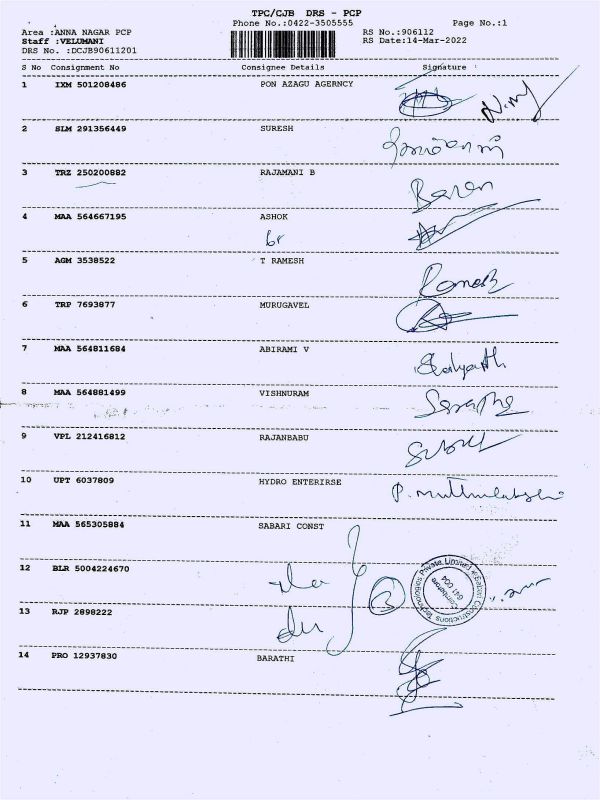 TPC/CJB DRS - PCP
Phone No.:0422-3505555 Page No.:1
Area :ANNA NAGAR PCP RS No.:906112
Staff :VELUMANI RS Date:14-Mar-2022
DRS No. :DCJB90611201
S No Consignment No Consignee Details Signature
1 IXM 501208486 PON AZAGU AGERNCY
2 SLM 291356449 SURESH
3 TRZ 250200882 RAJAMANI B
4 MAA 564667195 ASHOK
5 AGM 3538522 T RAMESH
Ramesh
6 TRP 7693877 MURUGAVEL
7 MAA 564811684 ABIRAMI V
8 MAA 564881499 VISHNURAM
9 VPL 212416812 RAJANBABU
10 UPT 6037809 HYDRO ENTERIRSE
P. Muthulakshmi
11 MAA 565305884 SABARI CONST
12 BLR 5004224670
Sabari Constructions Technologies Private Limited
Coimbatore
641 004
13 RJP 2898222
14 PRO 12937830 BARATHI